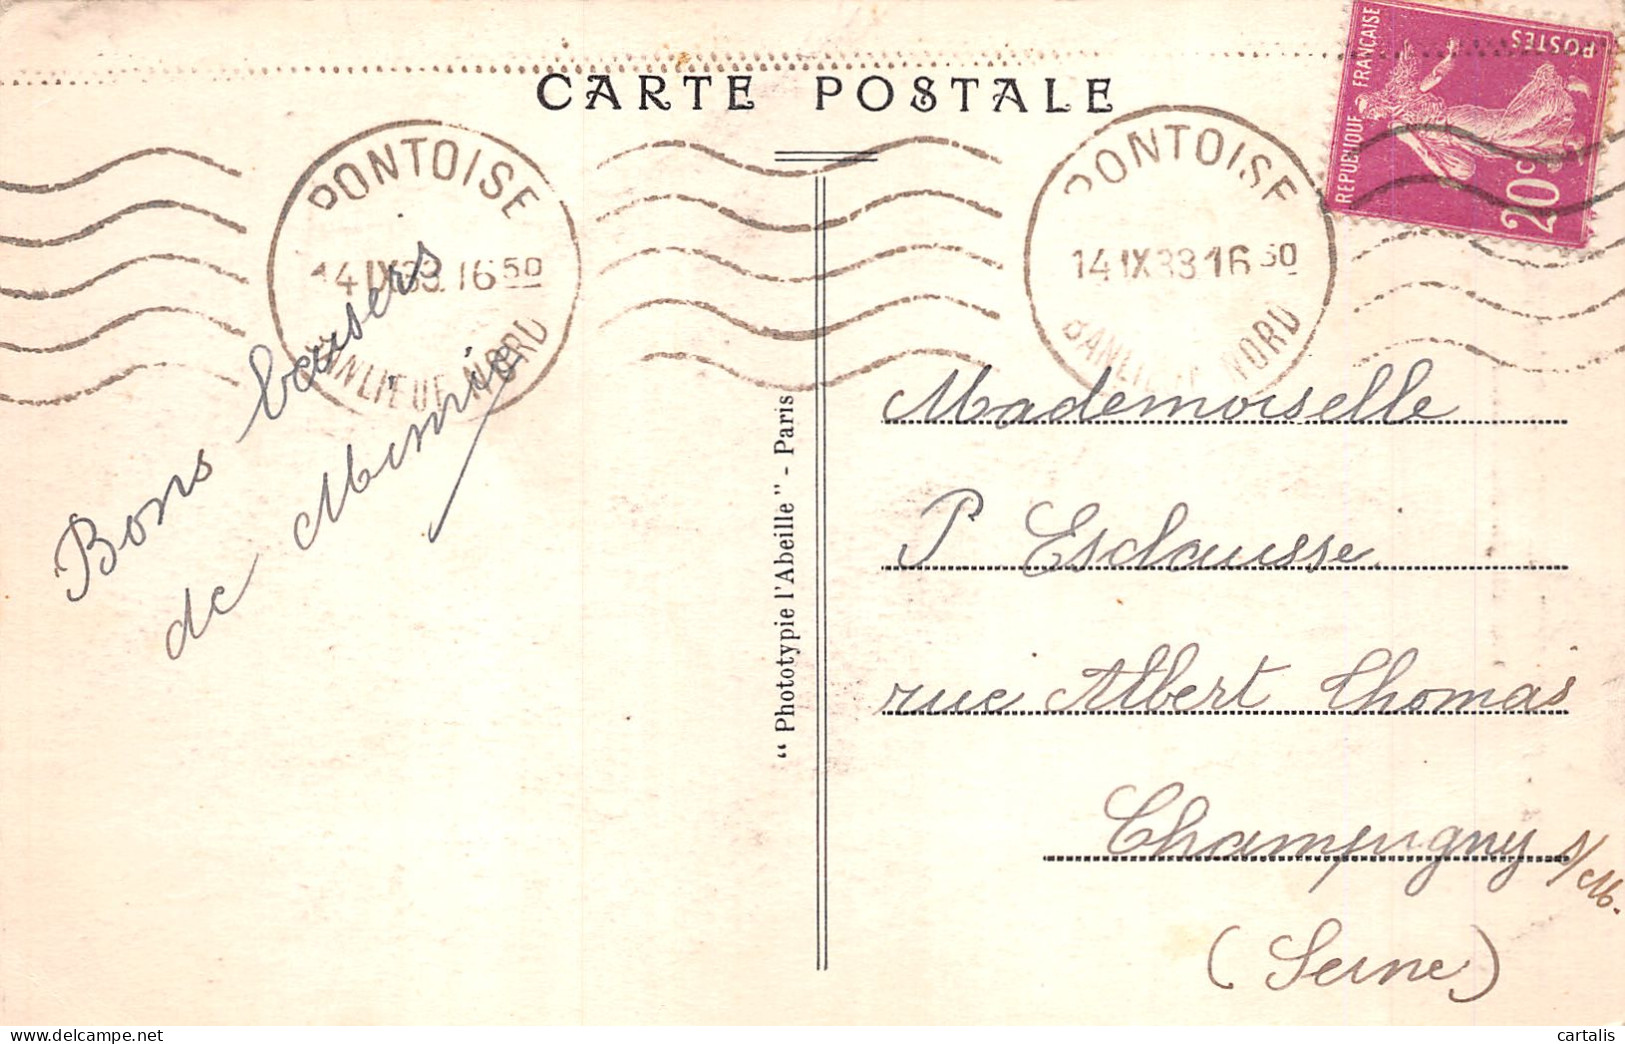 CARTE POSTALE
REPUBLIQUE FRANÇAISE
POSTES
20c
PONTOISE
14 IX 33 16 50
BANLIEUE NORD
PONTOISE
14 IX 33 16 50
BANLIEUE NORD
Bons baisers
de Mimie
"Phototypie l'Abeille" - Paris
Mademoiselle
P Esclausse
rue Albert Thomas
Champigny s/M.
(Seine)
delcampe.net
cartalis